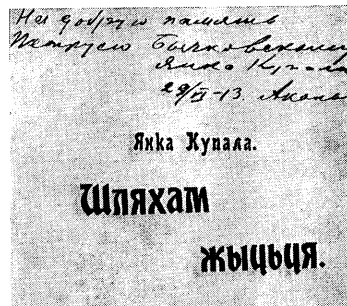 На добрую памяць
Бычковскому
Янка Купала
29/VI-13. Акопы
Янка Купала.
Шляхам
жыцьця.